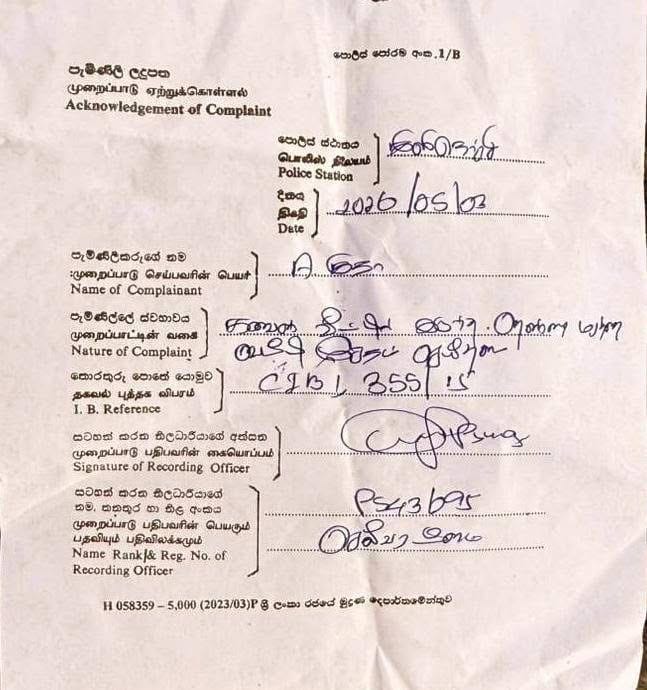 පොලිස් පෝරම අංක.1/B
පැමිණිලි ලදුපත
முறைப்பாடு ஏற்றுக்கொள்ளல்
Acknowledgement of Complaint
පොලිස් ස්ථානය
பொலிஸ் நிலையம்
Police Station
දිනය
திகதி
Date
2026/05/03
පැමිණිලිකරුගේ නම
முறைப்பாடு செய்பவரின் பெயர்
Name of Complainant
A
පැමිණිල්ලේ ස්වභාවය
முறைப்பாட்டின் வகை
Nature of Complaint
තොරතුරු පොතේ යොමුව
தகவல் புத்தக விபரம்
I. B. Reference
CIB I 355/15
සටහන් කරන නිලධාරියාගේ අත්සන
முறைப்பாடு பதிபவரின் கையொப்பம்
Signature of Recording Officer
සටහන් කරන නිලධාරියාගේ
නම, තනතුර හා නිල අංකය
முறைப்பாடு பதிபவரின் பெயரும்
பதவியும் பதிவிலக்கமும்
Name Rank & Reg. No. of
Recording Officer
PS43695
H 058359 – 5,000 (2023/03)P ශ්‍රී ලංකා රජයේ මුද්‍රණ දෙපාර්තමේන්තුව